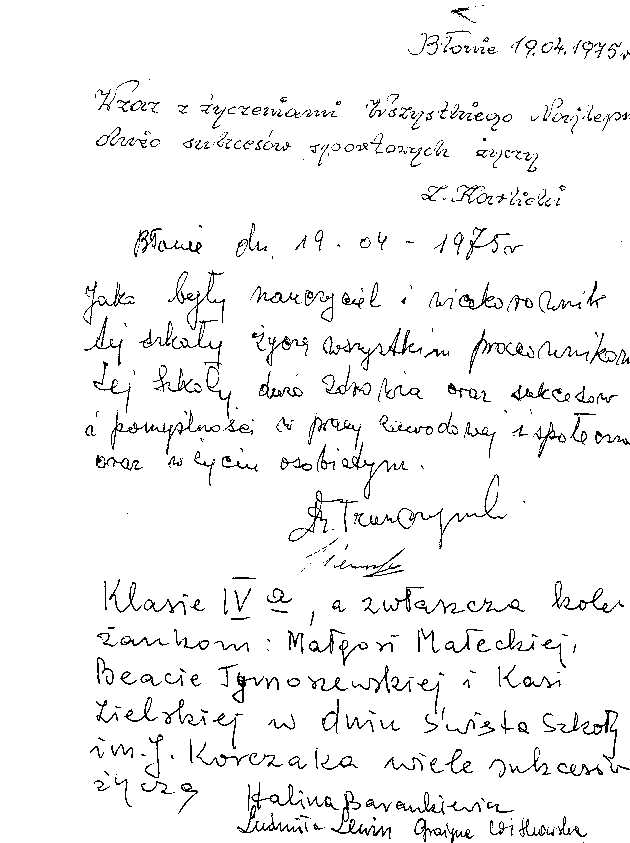 Błonie 19.04.1975r
Wraz z życzeniami Wszystkiego Najleps
dużo sukcesów sportowych życzy
Z. Karlicki
Błonie dn. 19.04-1975r
Jako były nauczyciel i
tej szkoły życzę wszystkim pracownikom
tej Szkoły dużo zdrowia oraz sukcesów
i pomyślności w pracy zawodowej i społeczn
oraz w życiu osobistym.
Klasie IV a, a zwłaszcza kole-
żankom: Małgosi Małeckiej,
Beacie Tymoszewskiej i Kasi
Zielskiej w dniu Święta Szkoły
im. J. Korczaka wiele sukcesów
życzą
Halina Barankiewicz
Ludmiła Lewin Grażyna Witkowska